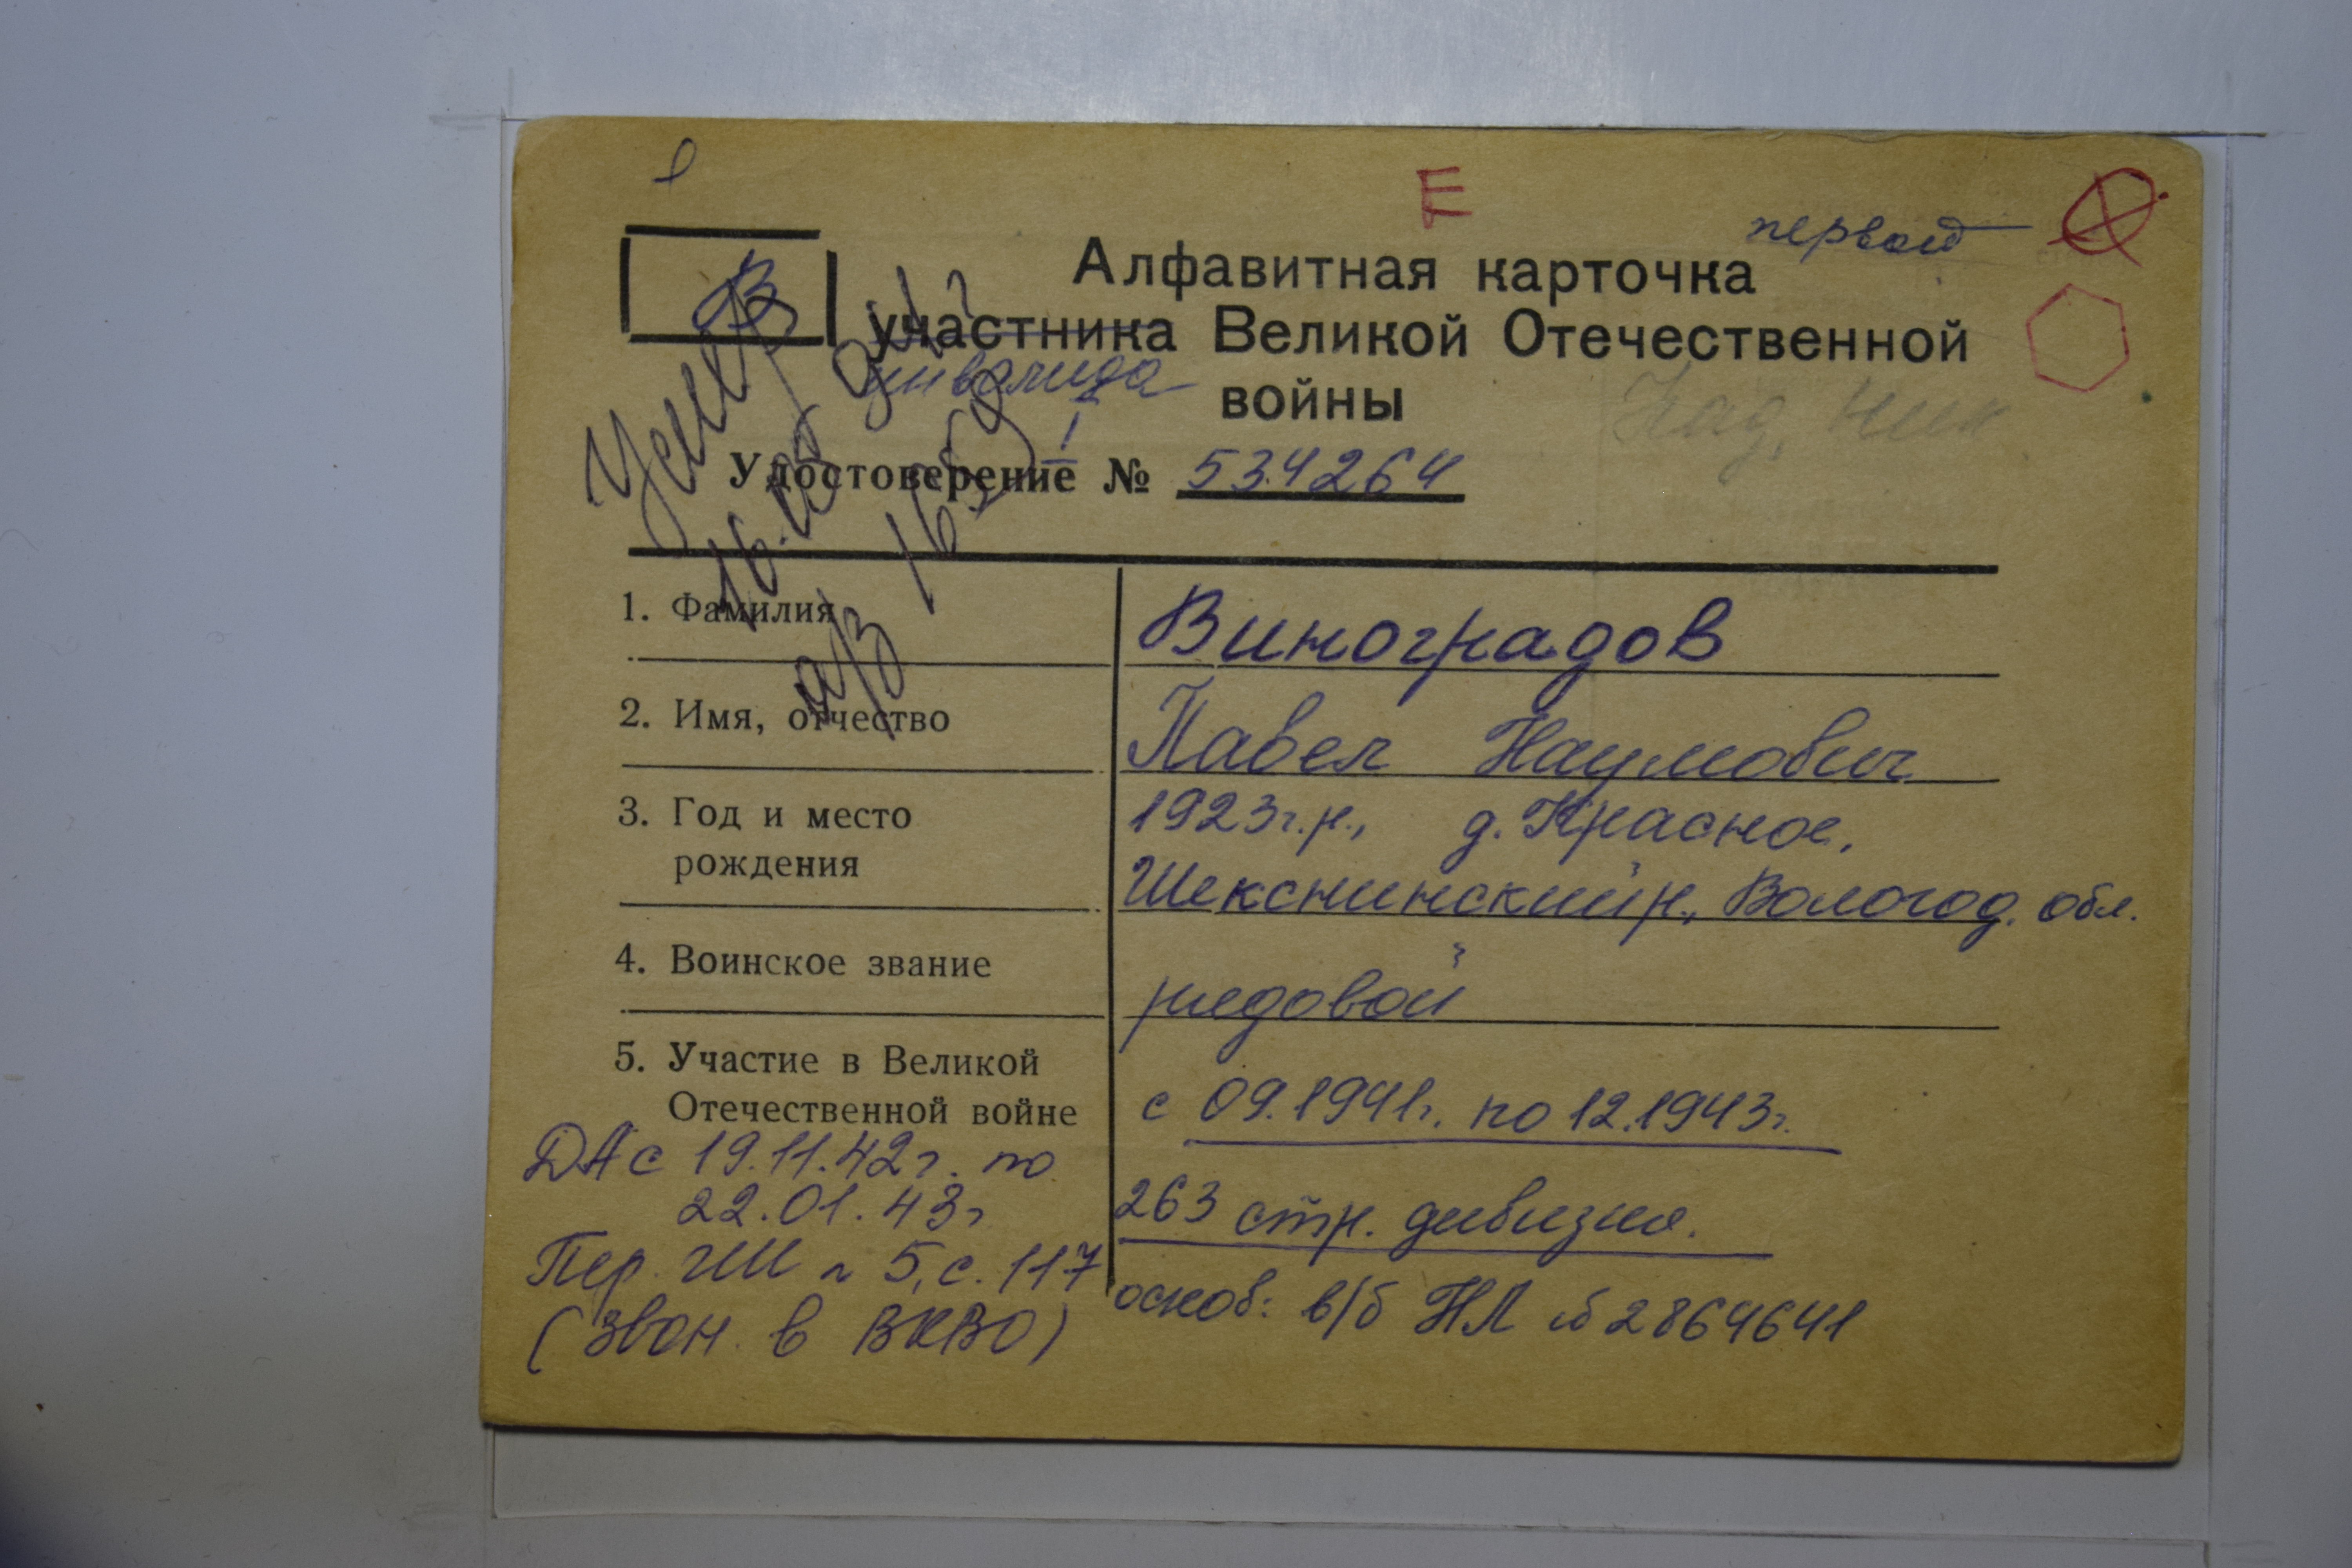 Е
первой
В
Алфавитная карточка
участника Великой Отечественной
инвалида
войны
I
Удостоверение № 534264
Умер
а/з 16
1. Фамилия
Виноградов
2. Имя, отчество
Павел Наумович
3. Год и место
рождения
1923г.р., д. Красное,
Шекснинский р., Вологод. обл.
4. Воинское звание
рядовой
5. Участие в Великой
Отечественной войне
с 09.1941г. по 12.1943г.
ДА с 19.11.42г. по
22.01.43г
263 стр. дивизия.
Пер. 5, с. 117
(Звон. в ВКВО)
основ: в/б НЛ № 2864641